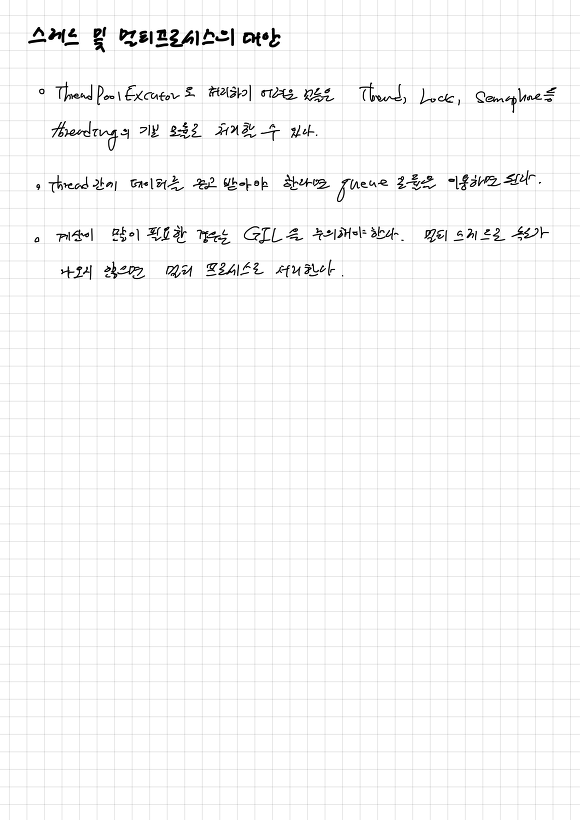 스레드 및 멀티프로세스의 대안
ThreadPoolExcutor로 처리하기 어려운 것들은 Thread, Lock, Semaphore등
threading의 기본 모듈로 처리할 수 있다.
Thread간에 데이터를 주고 받아야 한다면 queue 모듈을 이용해도 된다.
계산이 많이 필요한 경우는 GIL을 주의해야한다. 멀티 스레드로 속도가
나오지 않으면 멀티 프로세스로 처리한다.